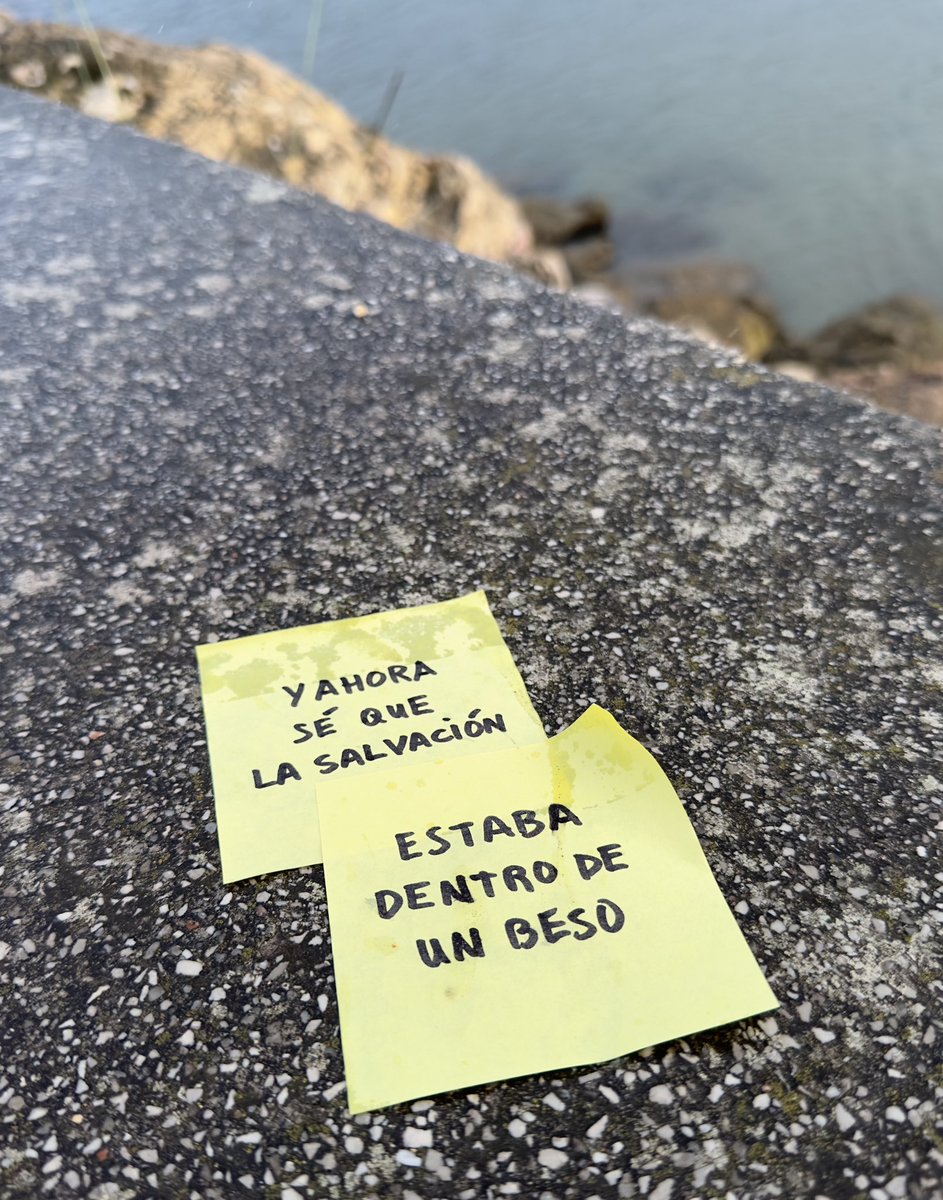 Y AHORA
SÉ QUE
LA SALVACIÓN
ESTABA
DENTRO DE
UN BESO